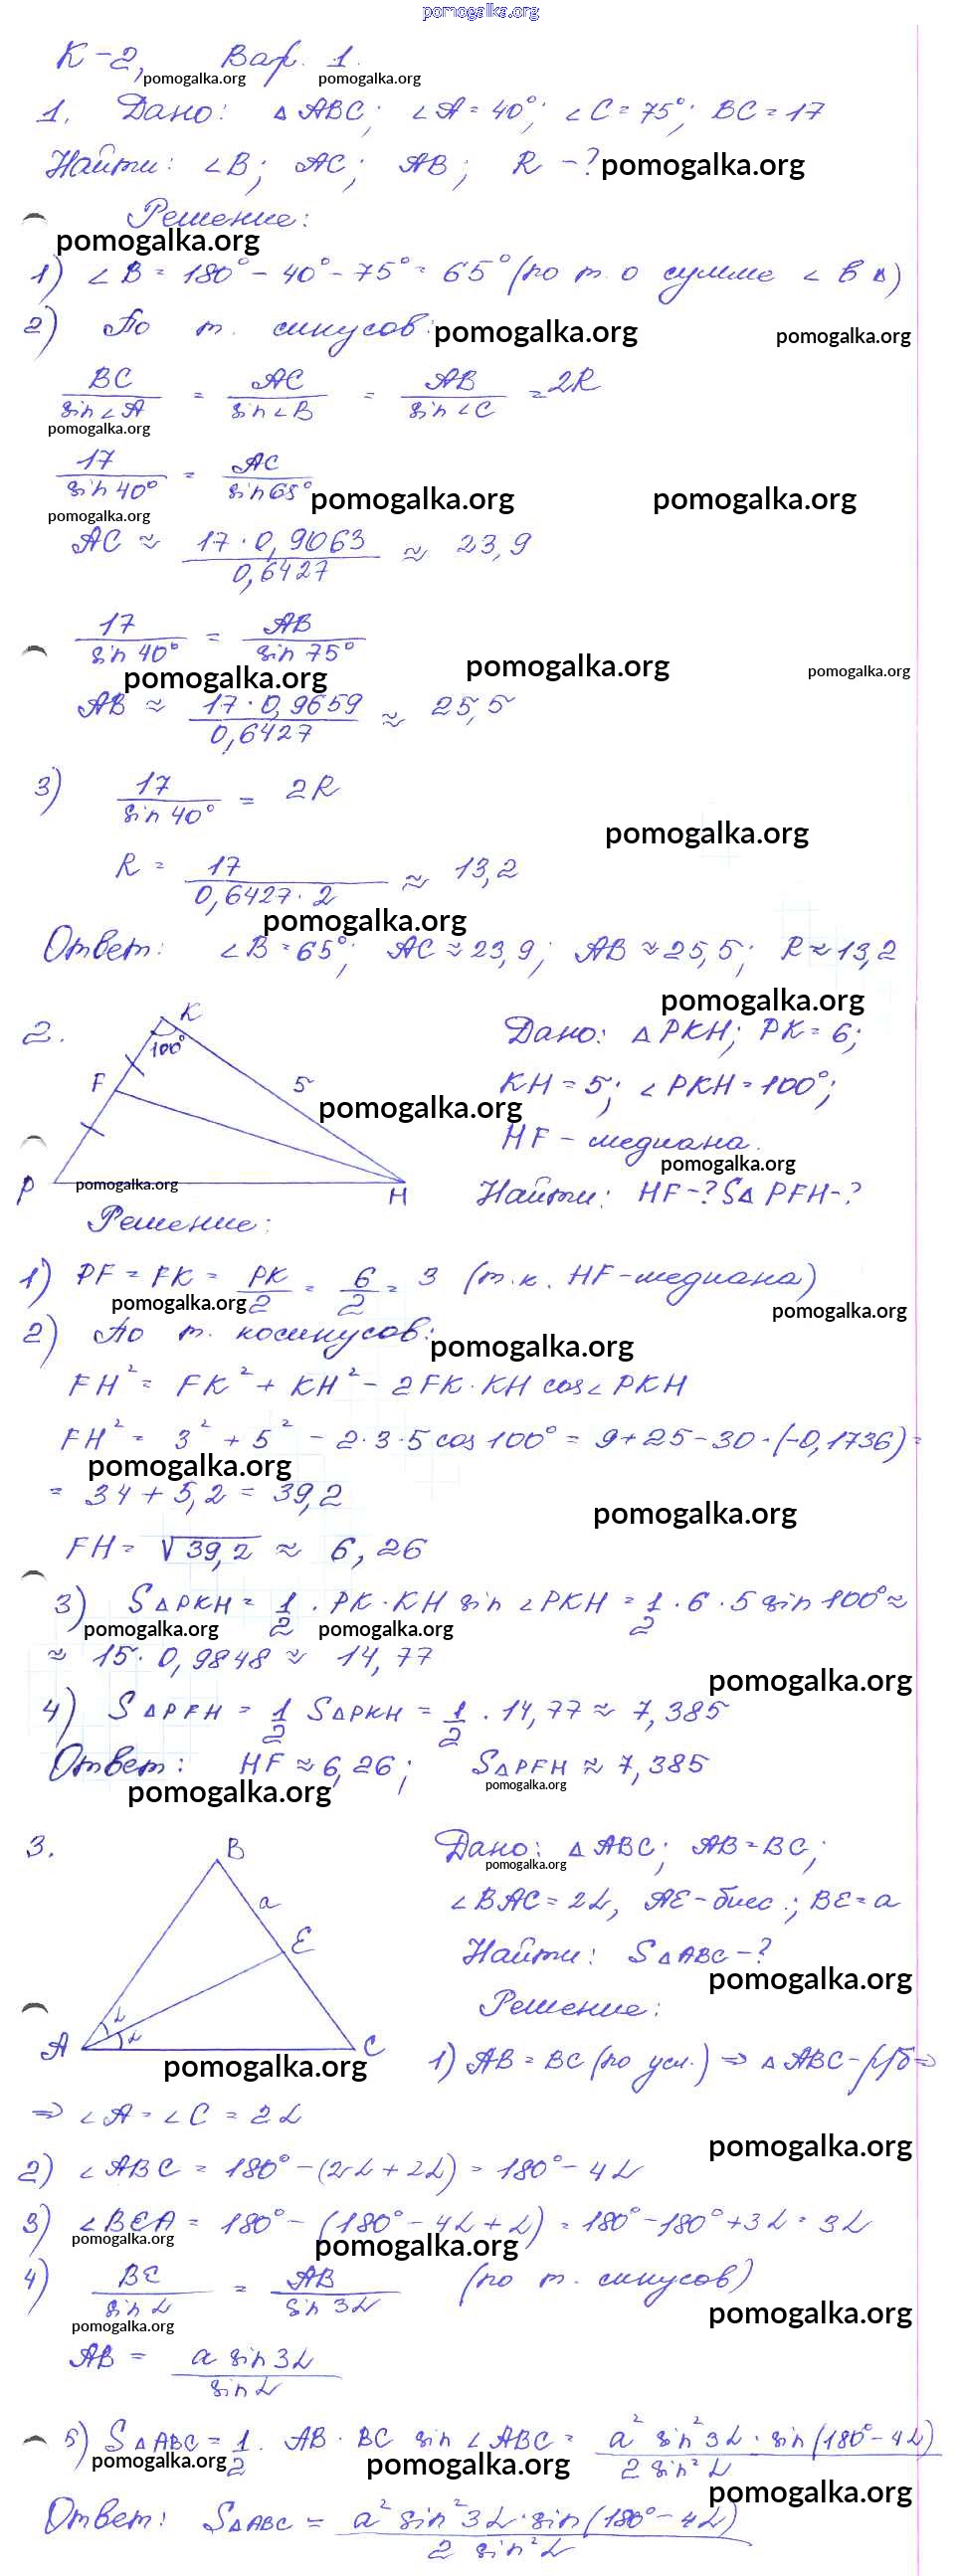 pomogalka.org
К-2, Вар. 1.
pomogalka.org pomogalka.org
1. Дано: △ABC; ∠A = 40°; ∠C = 75°; BC = 17
Найти: ∠B; AC; AB; R - ? pomogalka.org
Решение:
pomogalka.org
1) ∠B = 180° - 40° - 75° = 65° (по т. о сумме ∠ в △)
2) По т. синусов: pomogalka.org pomogalka.org
BC/sin∠A = AC/sin∠B = AB/sin∠C = 2R
pomogalka.org
17/sin 40° = AC/sin 65° pomogalka.org pomogalka.org
pomogalka.org
AC ≈ 17 · 0,9063/0,6427 ≈ 23,9
17/sin 40° = AB/sin 75°
pomogalka.org pomogalka.org pomogalka.org
AB ≈ 17 · 0,9659/0,6427 ≈ 25,5
3) 17/sin 40° = 2R
pomogalka.org
R = 17/0,6427 · 2 ≈ 13,2
pomogalka.org
Ответ: ∠B = 65°; AC ≈ 23,9; AB ≈ 25,5; R ≈ 13,2
pomogalka.org
2. K 100° F 5 P H
Дано: △PKH; PK = 6;
KH = 5; ∠PKH = 100°;
pomogalka.org
HF - медиана.
pomogalka.org
pomogalka.org
Найти: HF - ? S△PFH - ?
Решение:
1) PF = FK = PK/2 = 6/2 = 3 (т.к. HF - медиана)
pomogalka.org pomogalka.org
2) По т. косинусов: pomogalka.org
FH² = FK² + KH² - 2FK · KH cos∠PKH
FH² = 3² + 5² - 2 · 3 · 5 cos 100° = 9 + 25 - 30 · (-0,1736) =
pomogalka.org
= 34 + 5,2 = 39,2
pomogalka.org
FH = √39,2 ≈ 6,26
3) S△PKH = 1/2 · PK · KH sin∠PKH = 1/2 · 6 · 5 sin 100° ≈
pomogalka.org pomogalka.org
≈ 15 · 0,9848 ≈ 14,77
pomogalka.org
4) S△PFH = 1/2 S△PKH = 1/2 · 14,77 ≈ 7,385
Ответ: HF ≈ 6,26; S△PFH ≈ 7,385
pomogalka.org pomogalka.org
3. B a E A α α C
Дано: △ABC; AB = BC;
pomogalka.org
∠BAC = 2α, AE - бисс.; BE = a
Найти: S△ABC - ?
pomogalka.org
Решение:
pomogalka.org
1) AB = BC (по усл.) ⇒ △ABC - р/б ⇒
⇒ ∠A = ∠C = 2α
pomogalka.org
2) ∠ABC = 180° - (2α + 2α) = 180° - 4α
3) ∠BEA = 180° - (180° - 4α + α) = 180° - 180° + 3α = 3α
pomogalka.org pomogalka.org
4) BE/sin α = AB/sin 3α (по т. синусов)
pomogalka.org pomogalka.org
AB = a sin 3α/sin α
5) S△ABC = 1/2 · AB · BC sin∠ABC = a² sin² 3α · sin(180° - 4α)/2 sin² α
pomogalka.org pomogalka.org
pomogalka.org
Ответ: S△ABC = a² sin² 3α · sin(180° - 4α)/2 sin² α